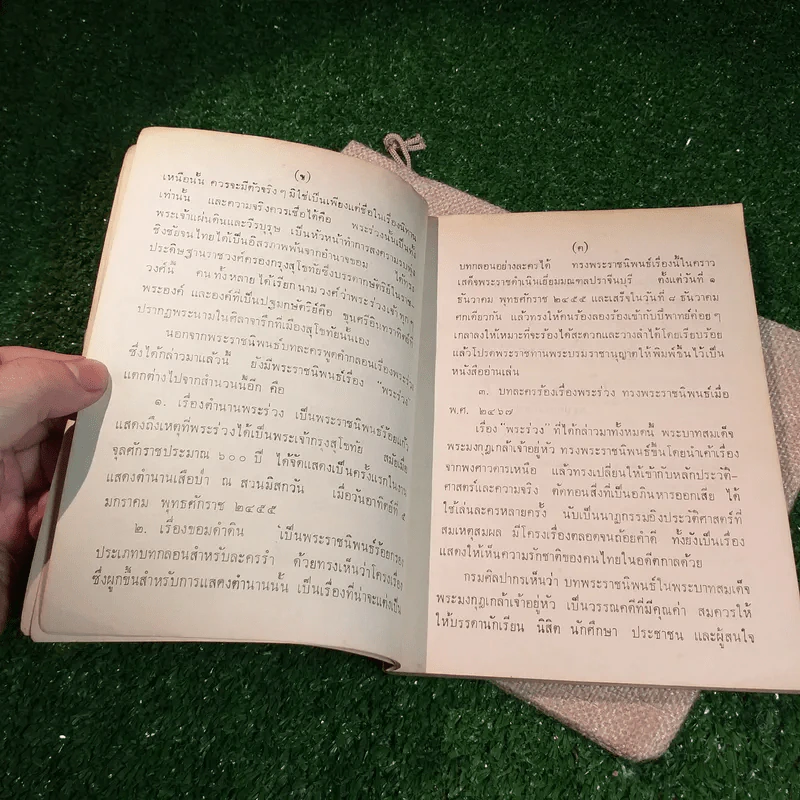 (ข)
เหนือนั้น ควรจะมีตัวจริง ๆ มิใช่เป็นเพียงแต่ชื่อในเรื่องนิทาน
เท่านั้น และความจริงควรเชื่อได้คือ พระร่วงนั้นเป็นทั้ง
พระเจ้าแผ่นดินและวีรบุรุษ เป็นหัวหน้าทำการสงคราม
ซึ่งชัยจนไทยได้เป็นอิสรภาพพ้นจากอำนาจขอม ได้ทรง
ประดิษฐานราชวงศ์ครองกรุงสุโขทัยซึ่งบรรดากษัตริย์ในราช-
วงศ์นี้ คนทั้งหลายได้เรียกนามวงศ์ว่าพระร่วงเจ้าทุก ๆ
พระองค์ และองค์ที่เป็นปฐมกษัตริย์คือ ขุนศรีอินทราทิตย์ที่
ปรากฏพระนามในศิลาจารึกที่เมืองสุโขทัยนั้นเอง
นอกจากพระราชนิพนธ์บทละครพูดคำกลอนเรื่องพระร่วง
ซึ่งได้กล่าวมาแล้วนี้ ยังมีพระราชนิพนธ์เรื่อง "พระร่วง"
แตกต่างไปจากสำนวนนี้อีก คือ
๑. เรื่องตำนานพระร่วง เป็นพระราชนิพนธ์ร้อยแก้ว
แสดงถึงเหตุที่พระร่วงได้เป็นพระเจ้ากรุงสุโขทัย สมัยเมื่อ
จุลศักราชประมาณ ๖๐๐ ปี ได้จัดแสดงเป็นครั้งแรกในงาน
แสดงตำนานเสือป่า ณ สวนมิสกวัน เมื่อวันอาทิตย์ที่ ๕
มกราคม พุทธศักราช ๒๔๕๕
๒. เรื่องขอมดำดิน เป็นพระราชนิพนธ์ร้อยกรอง
ประเภทบทกลอนสำหรับละครรำ ด้วยทรงเห็นว่าโครงเรื่อง
ซึ่งผูกขึ้นสำหรับการแสดงตำนานนั้น เป็นเรื่องที่น่าจะแต่งเป็น
(ค)
บทกลอนอย่างละครได้ ทรงพระราชนิพนธ์เรื่องนี้ในคราว
เสด็จพระราชดำเนินเยี่ยมมณฑลปราจีนบุรี ตั้งแต่วันที่ ๑
ธันวาคม พุทธศักราช ๒๔๕๕ และเสร็จในวันที่ ๘ ธันวาคม
ศกเดียวกัน แล้วทรงให้คนร้องลองร้องเข้ากับปี่พาทย์ค่อย ๆ
เกลาลงให้เหมาะที่จะร้องได้สะดวกและวางลำได้โดยเรียบร้อย
แล้วโปรดพระราชทานพระบรมราชานุญาตให้พิมพ์ขึ้นไว้เป็น
หนังสืออ่านเล่น
๓. บทละครร้องเรื่องพระร่วง ทรงพระราชนิพนธ์เมื่อ
พ.ศ. ๒๔๖๗
เรื่อง "พระร่วง" ที่ได้กล่าวมาทั้งหมดนี้ พระบาทสมเด็จ
พระมงกุฎเกล้าเจ้าอยู่หัว ทรงพระราชนิพนธ์ขึ้นโดยนำเค้าเรื่อง
จากพงศาวดารเหนือ แล้วทรงเปลี่ยนให้เข้ากับหลักประวัติ-
ศาสตร์และความจริง ตัดทอนสิ่งที่เป็นอภินิหารออกเสีย ได้
ใช้เล่นละครหลายครั้ง นับเป็นนาฏกรรมอิงประวัติศาสตร์ที่
สมเหตุสมผล มีโครงเรื่องตลอดจนถ้อยคำดี ทั้งยังเป็นเรื่อง
แสดงให้เห็นความรักชาติของคนไทยในอดีตกาลด้วย
กรมศิลปากรเห็นว่า บทพระราชนิพนธ์ในพระบาทสมเด็จ
พระมงกุฎเกล้าเจ้าอยู่หัว เป็นวรรณคดีที่มีคุณค่า สมควรให้
ให้บรรดานักเรียน นิสิต นักศึกษา ประชาชน และผู้สนใจ